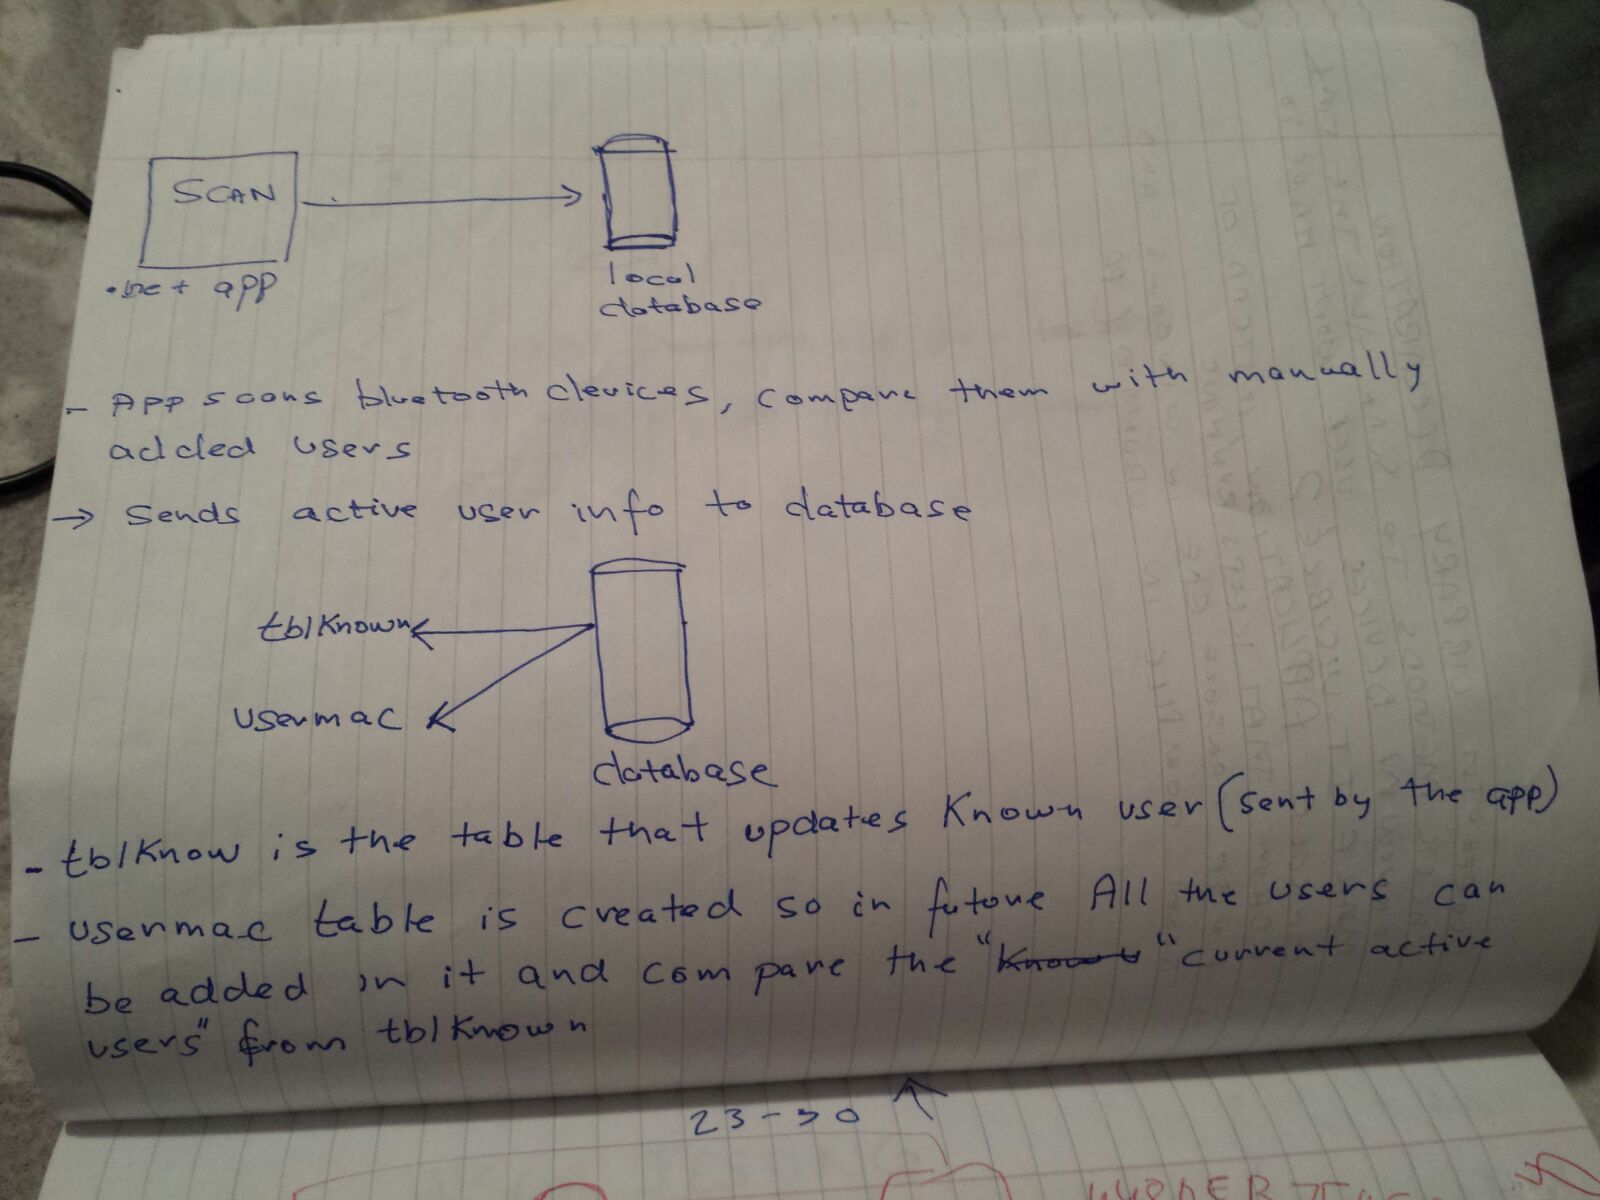 SCAN
.net app
local
database
- App scans bluetooth devices, compare them with manually
added users
→ Sends active user info to database
tblKnown
usermac
database
- tblKnow is the table that updates Known user (sent by the app)
- usermac table is created so in future All the users can
be added in it and compare the "Known" "current active
users" from tblKnown
23-30